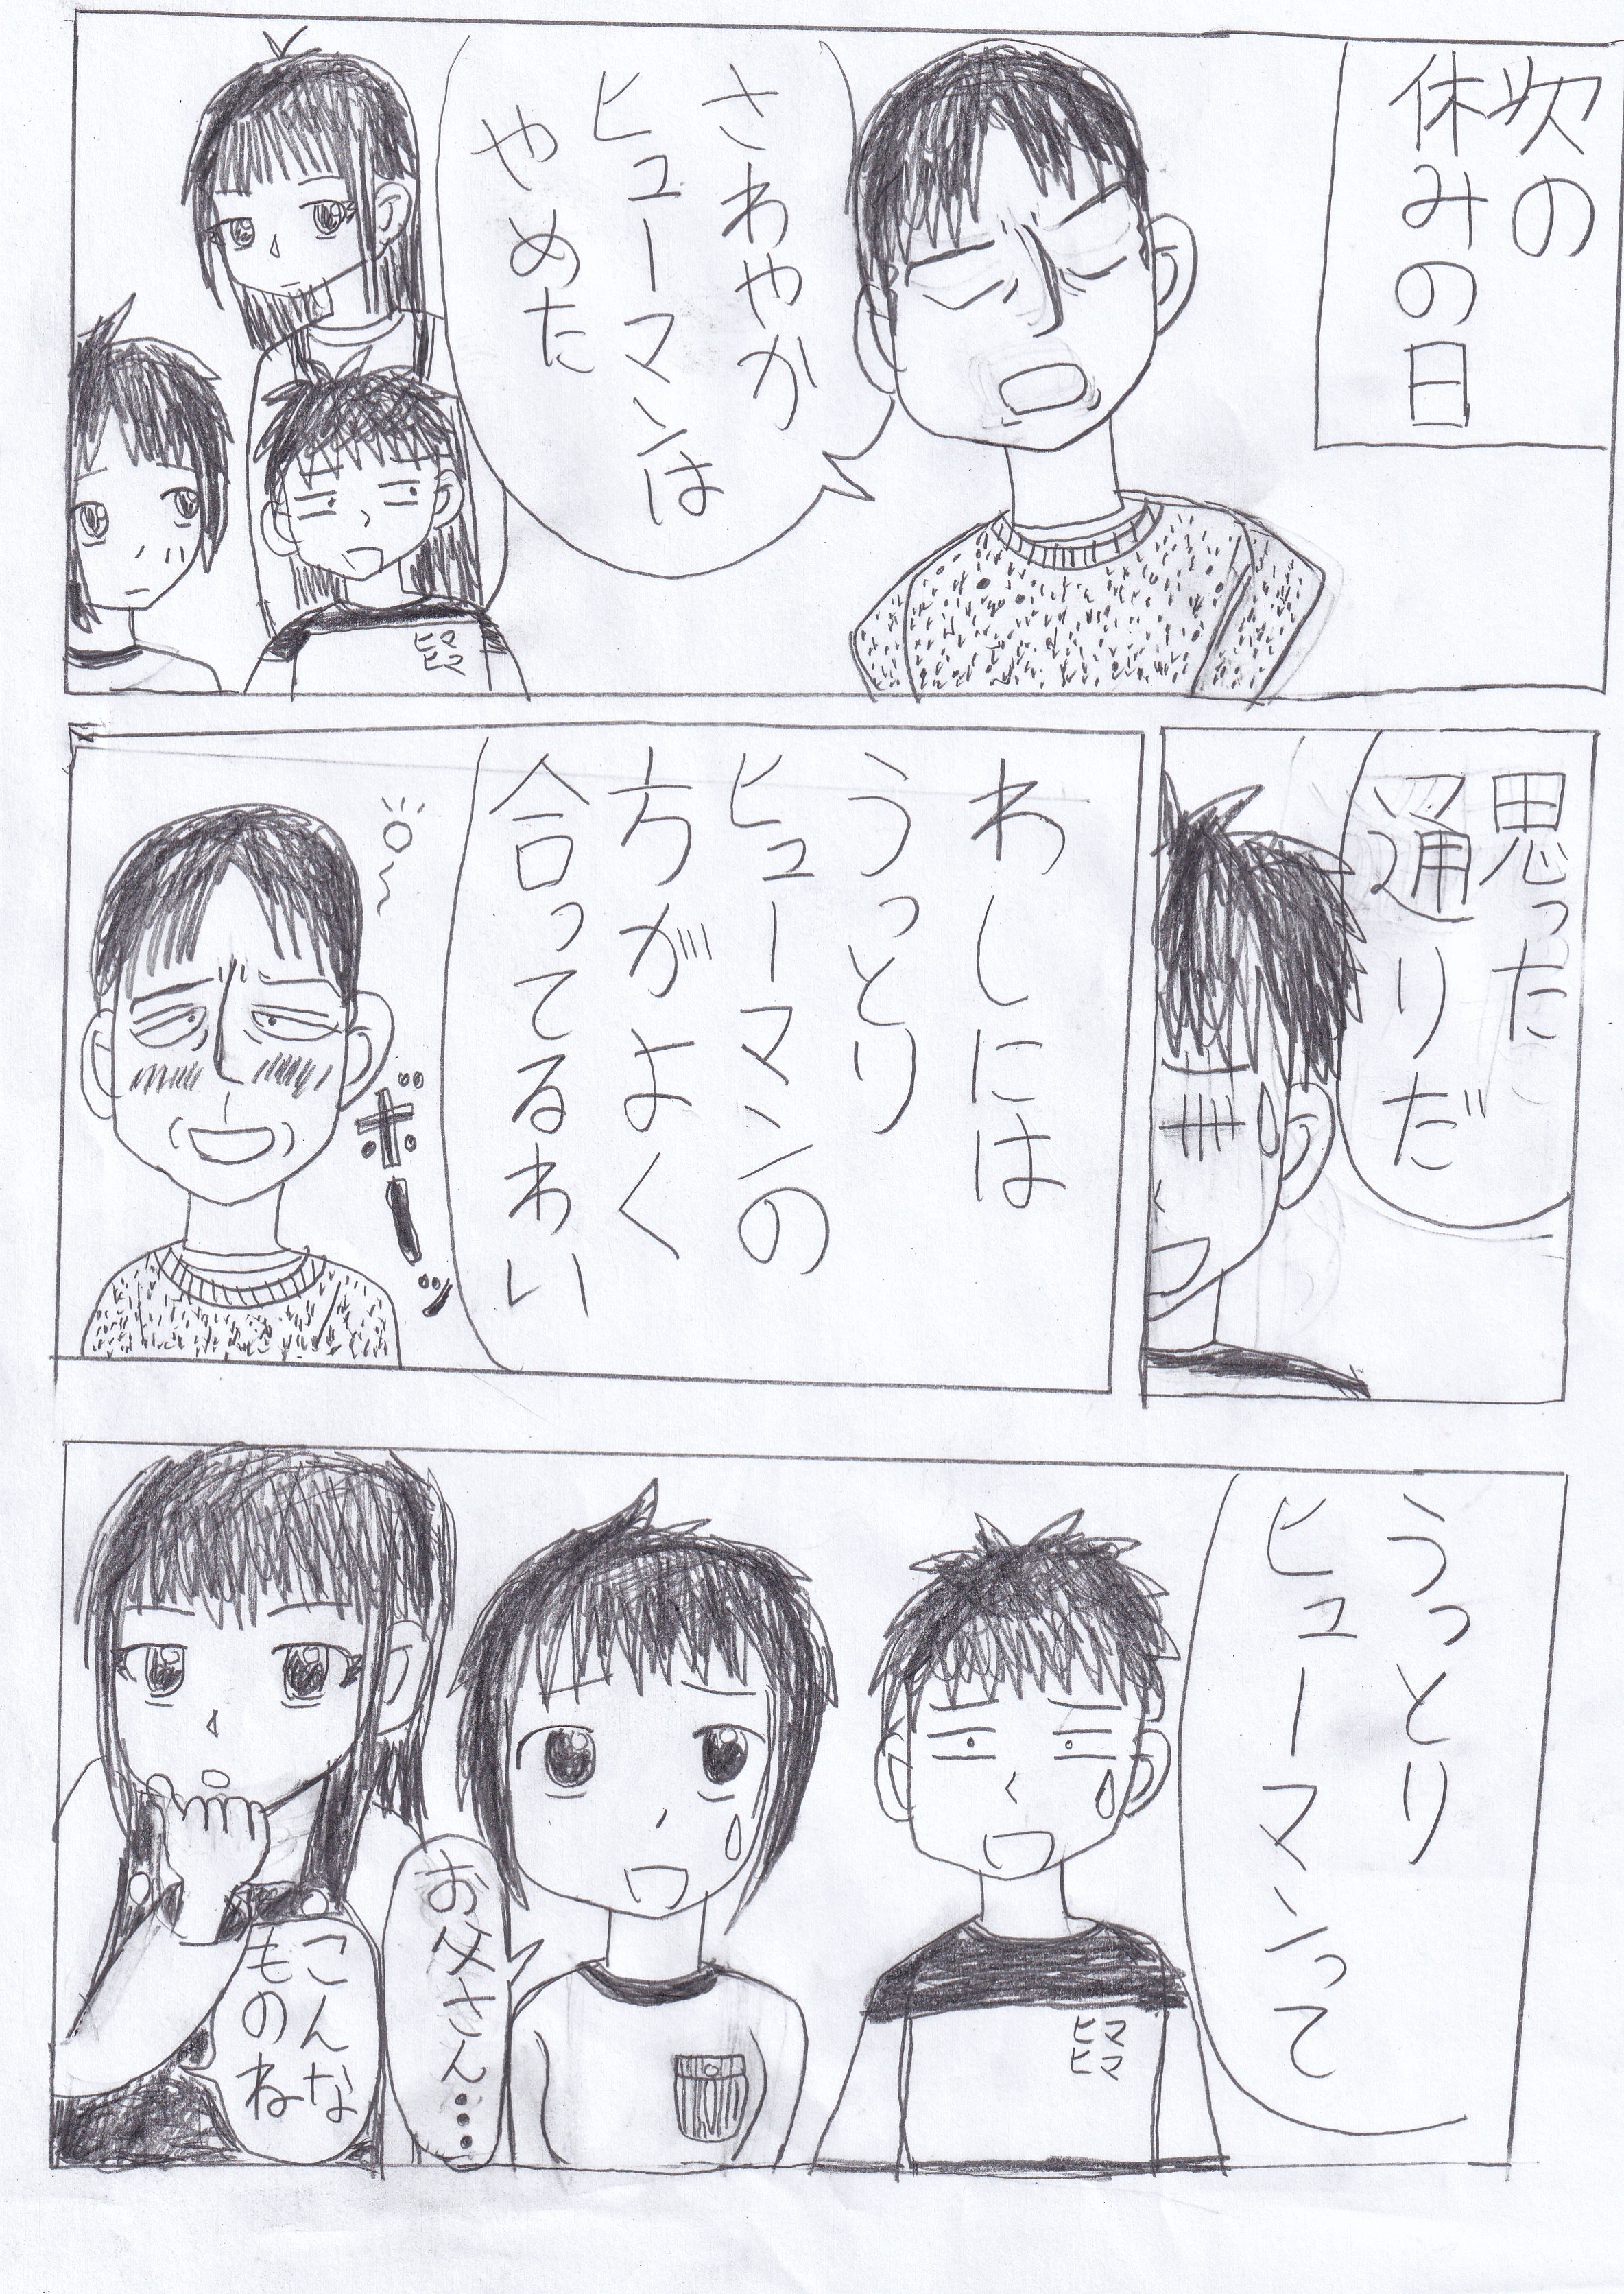 次の
休みの日
さわやか
ヒューマンは
やめた
ヒマ
ヒマ
思った
通りだ
わしには
うっとり
ヒューマンの
方がよく
合ってるわい
ポーッ
うっとり
ヒューマンって
ヒマ
ヒマ
お父さん…
こんな
ものね